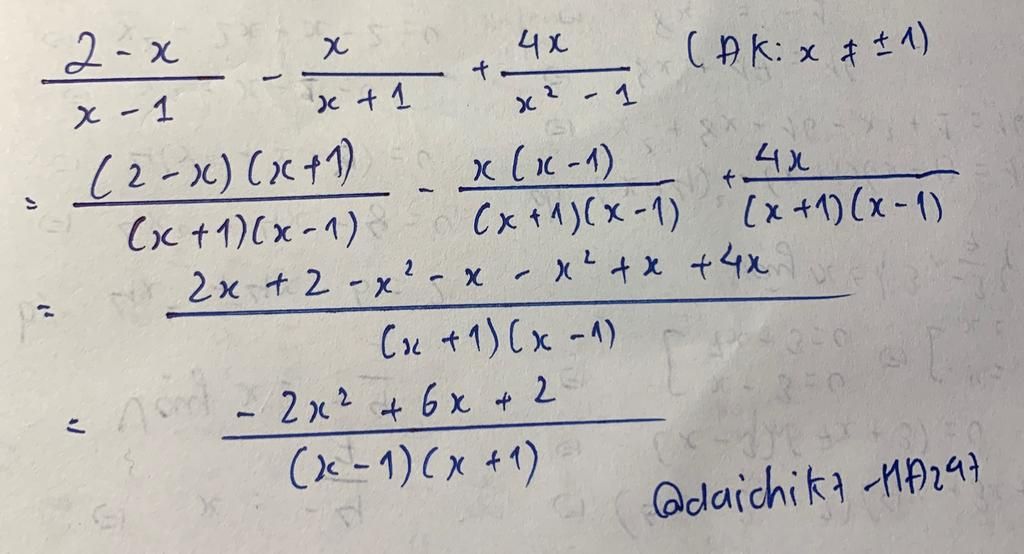 (2 - x)/(x - 1) - x/(x + 1) + 4x/(x² - 1) (ĐK: x ≠ ±1)
= (2 - x)(x + 1)/(x + 1)(x - 1) - x(x - 1)/(x + 1)(x - 1) + 4x/(x + 1)(x - 1)
= 2x + 2 - x² - x - x² + x + 4x/(x + 1)(x - 1)
= - 2x² + 6x + 2/(x - 1)(x + 1)
@daichik7 - HA297